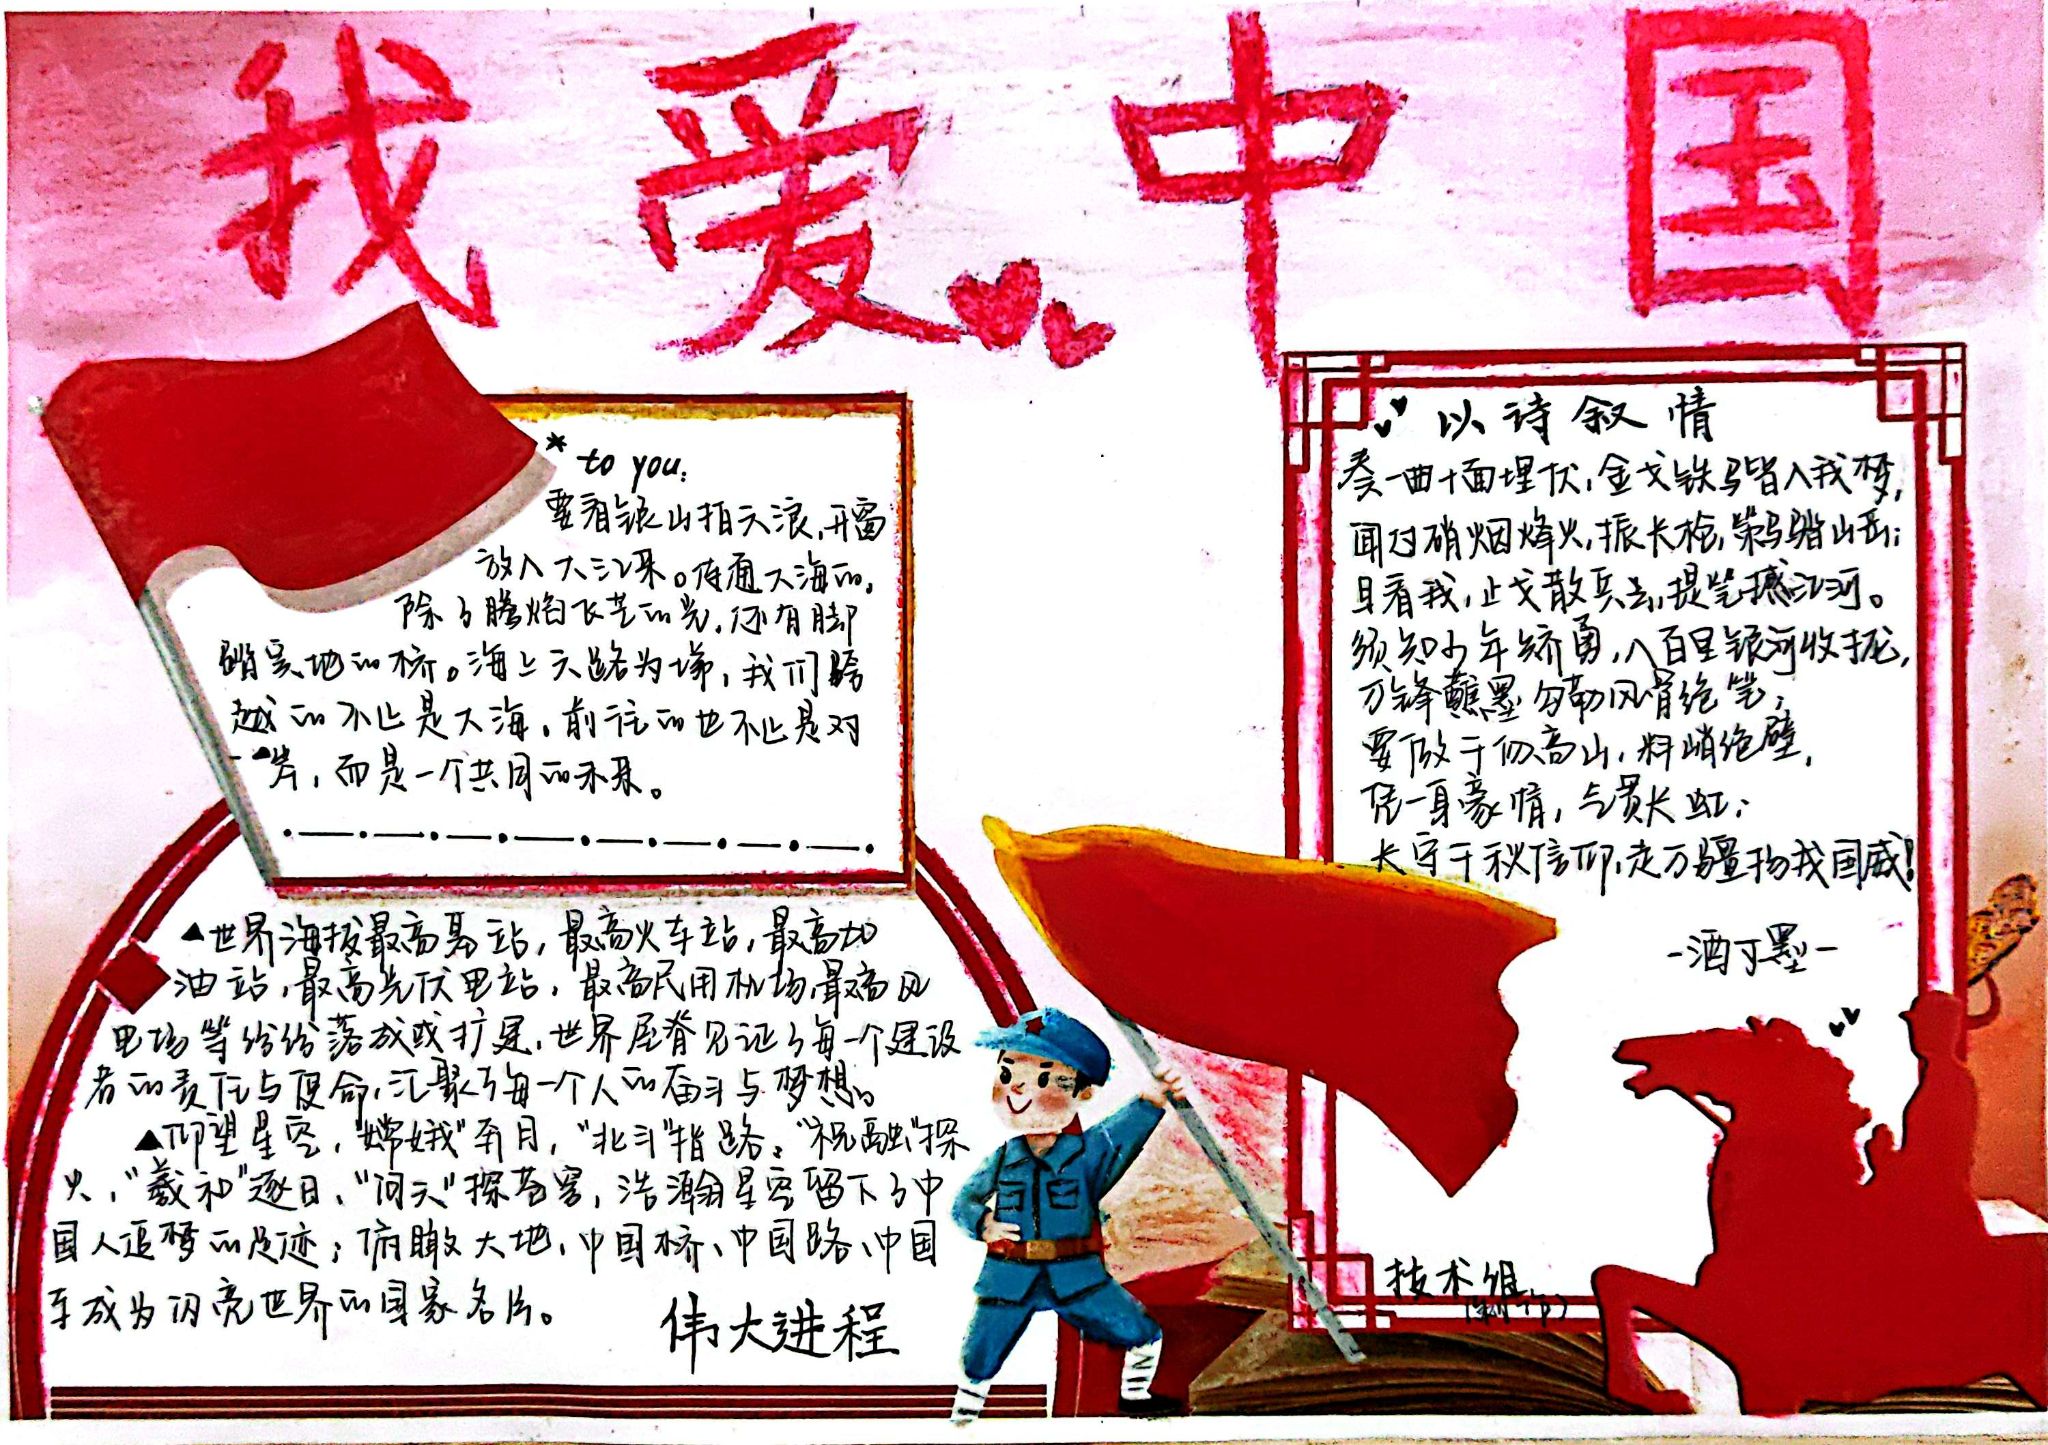 我爱中国
* to you:
要看银山拍天浪,开窗
放入大江来。连通大海的,
除了腾焰飞芒的光,还有脚
踏实地的桥。海上天路为梯,我们跨
越的不止是大海,前往的也不止是对
岸,而是一个共同的未来。
▲世界海拔最高基站,最高火车站,最高加
油站,最高光伏电站,最高民用机场,最高风
电场等纷纷落成或扩建,世界屋脊见证了每一个建设
者的责任与使命,汇聚了每一个人的奋斗与梦想。
▲仰望星空,“嫦娥”奔月,“北斗”指路。“祝融”探
火,“羲和”逐日,“问天”探苍穹,浩瀚星空留下了中
国人追梦的足迹;俯瞰大地,中国桥、中国路、中国
车成为闪亮世界的国家名片。
伟大进程
以诗叙情
奏一曲十面埋伏,金戈铁马皆入我梦,
闻过硝烟烽火,振长枪,策马踏山岳;
且看我,止戈散兵去,提笔撼江河。
须知少年矫勇,八百里银河收拢,
万锋蘸墨勾勒风骨绝笔;
要做于仞高山,料峭绝壁,
凭一身豪情,气贯长虹;
长守千秋信仰,定万疆扬我国威!
-酒丁墨-
技术组
(制作)